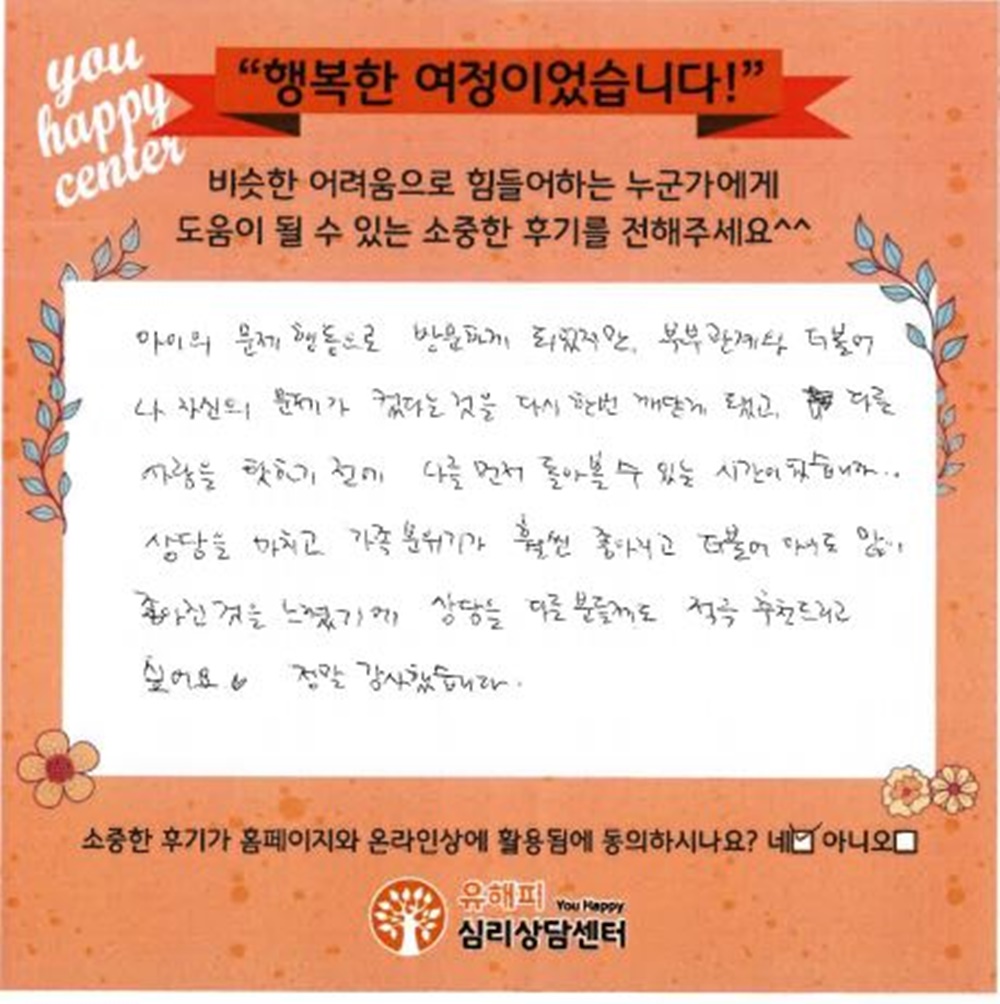 you
happy
center
“행복한 여정이었습니다!”
비슷한 어려움으로 힘들어하는 누군가에게
도움이 될 수 있는 소중한 후기를 전해주세요^^
아이의 문제행동으로 방문하게 되었지만, 부부관계와 더불어
나 자신의 문제가 컸다는 것을 다시 한번 깨닫게 됐고, 다른
사람을 탓하기 전에 나를 먼저 돌아볼 수 있는 시간이었습니다..
상담을 마치고 가족분위기가 훨씬 좋아지고 더불어 아이도 많이
좋아진 것을 느꼈기에 상담을 다른분들께도 적극 추천드리고
싶어요. 정말 감사했습니다.
소중한 후기가 홈페이지와 온라인상에 활용됨에 동의하시나요? 네☑ 아니오☐
유해피 You Happy
심리상담센터